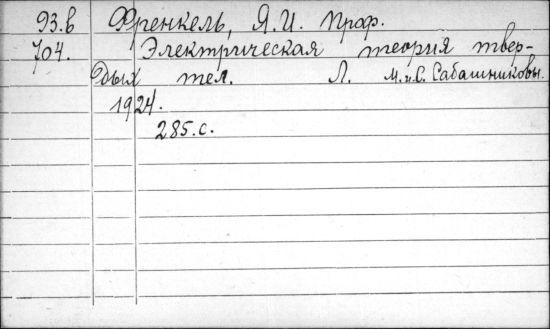 93.в Френкель, Я.И. Проф.
704. Электрическая теория твер-
дых тел. Л. М. и С. Сабашниковы.
1924.
285.с.